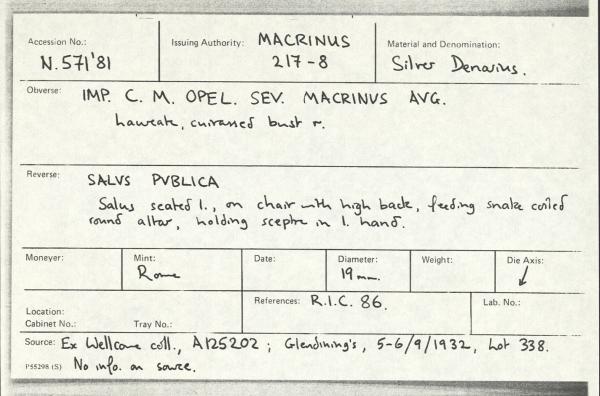 Accession No.: N.571'81
Issuing Authority: MACRINUS
217-8
Material and Denomination:
Silver Denarius.
Obverse: IMP. C. M. OPEL. SEV. MACRINVS AVG.
Laureate, cuirassed bust r.
Reverse:
SALVS PVBLICA
Salus seated l., on chair with high back, feeding snake coiled
round altar, holding sceptre in l. hand.
Moneyer:
Mint:
Rome
Date:
Diameter:
19mm.
Weight:
Die Axis:
↙
Location:
Cabinet No.: Tray No.:
References: R.I.C. 86.
Lab. No.:
Source: Ex Wellcome coll., A125202; Glendining's, 5-6/9/1932, Lot 338.
P55298 (S) No info. on source.